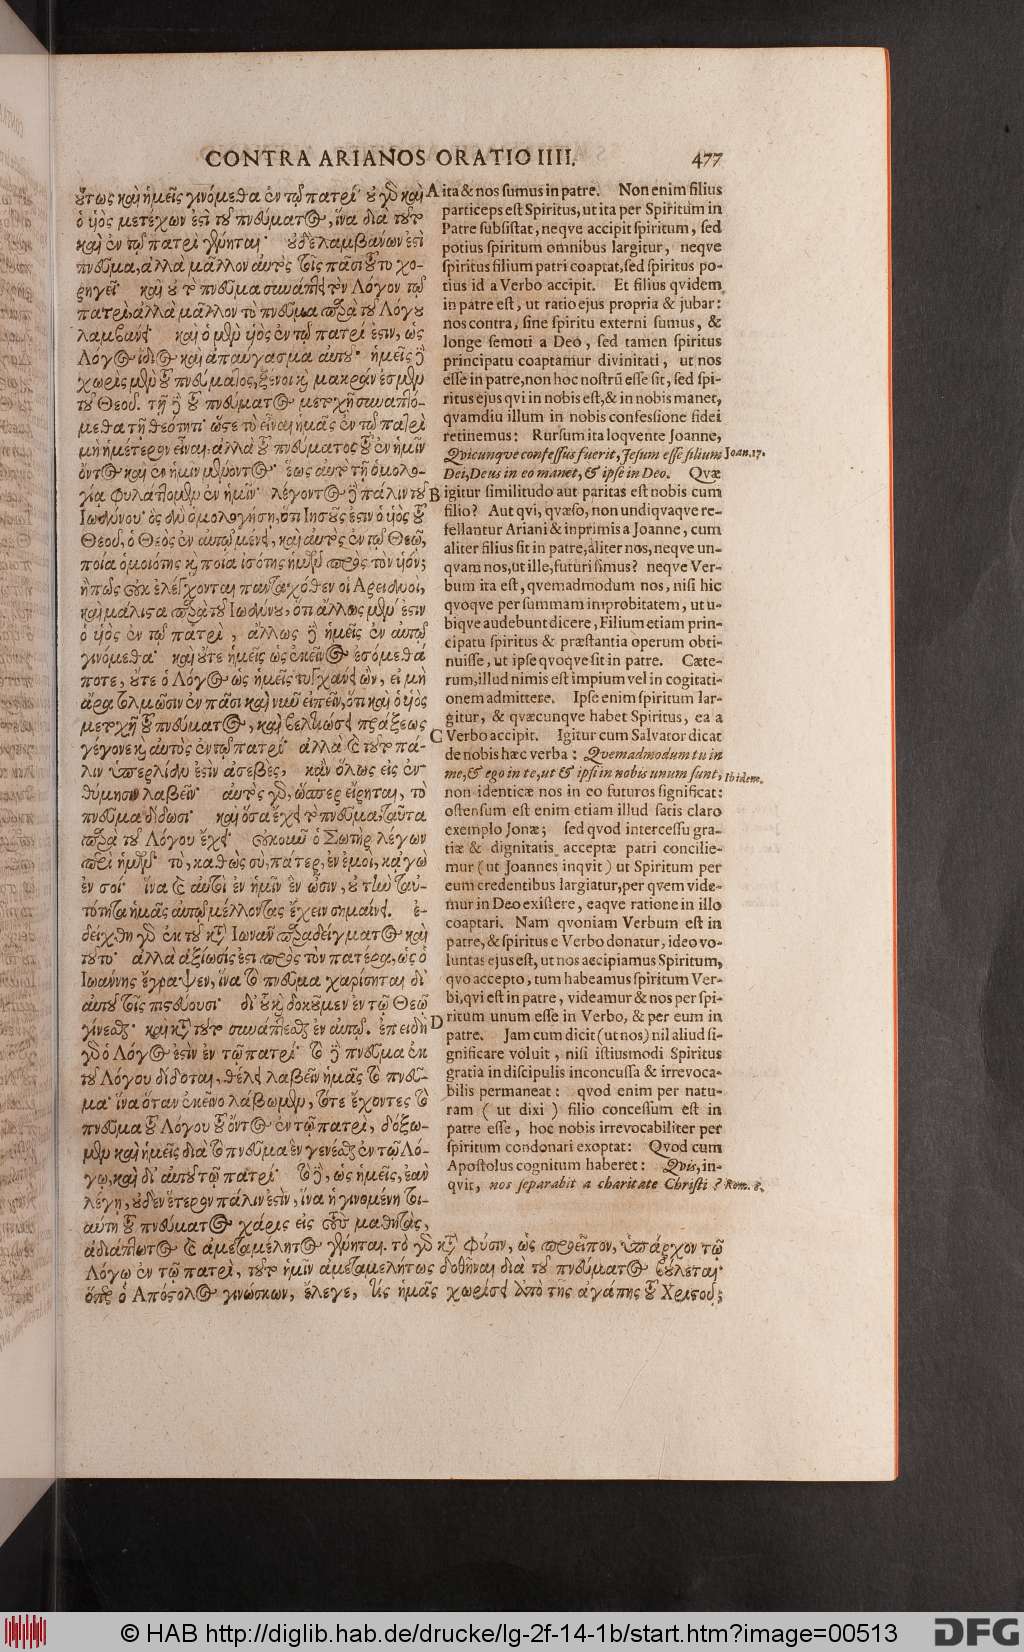 CONTRA ARIANOS ORATIO IIII. 477
ὕτως καὶ ἡμεῖς γινόμεθα ἐν τῷ πατρί· οὐ γὸ καὶ
ὁ ὑὸς μετέχων ἐστὶ τοῦ πνεύματος, ἵνα διὰ τοῦτο
καὶ ἐν τῷ πατρὶ γένηται· οὐδὲ λαμβάνων ἐστὶ
πνεῦμα, ἀλλὰ μᾶλλον αὐτὸς τοῖς πᾶσι τοῦτο χο-
ρηγεῖ· καὶ οὐ τὸ πνεῦμα συνάπτει τὸν Λόγον τῷ
πατρὶ, ἀλλὰ μᾶλλον τὸ πνεῦμα παρὰ τοῦ Λόγου
λαμβάνει· καὶ ὁ μὲν ὑὸς ἐν τῷ πατρί ἐστιν, ὡς
Λόγος ἴδιος καὶ ἀπαύγασμα αὐτοῦ· ἡμεῖς δὲ
χωρὶς μὲν τοῦ πνεύματος, ξένοι καὶ μακράν ἐσμεν
τοῦ Θεοῦ. τῇ δὲ τοῦ πνεύματος μετοχῇ συναπτό-
μεθα τῇ θεότητι· ὥστε τὸ εἶναι ἡμᾶς ἐν τῷ πατρὶ
μὴ ἡμέτερον εἶναι, ἀλλὰ τοῦ πνεύματος τοῦ ἐν ἡμῖν
ὄντος καὶ ἐν ἡμῖν μένοντος· ἕως αὐτὸ τῇ ὁμολο-
γίᾳ φυλάττομεν ἐν ἡμῖν· λέγοντος δὲ πάλιν τοῦ
Ἰωάννου· ὃς ἂν ὁμολογήσῃ, ὅτι Ἰησοῦς ἐστιν ὁ ὑὸς τοῦ
Θεοῦ, ὁ Θεὸς ἐν αὐτῷ μένει, καὶ αὐτὸς ἐν τῷ Θεῷ,
ποία ὁμοιότης καὶ ποία ἰσότης ἡμῶν πρὸς τὸν ὑόν;
ἢ πῶς οὐκ ἐλέγχονται πανταχόθεν οἱ Ἀρειανοὶ,
καὶ μάλιστα παρὰ τοῦ Ἰωάννου, ὅτι ἄλλως μὲν ἐστιν
ὁ ὑὸς ἐν τῷ πατρὶ, ἄλλως δὲ ἡμεῖς ἐν αὐτῷ
γινόμεθα· καὶ οὔτε ἡμεῖς ὡς ἐκεῖνος ἐσόμεθά
ποτε, οὔτε ὁ Λόγος ὡς ἡμεῖς τυγχάνει ὢν, εἰ μὴ
ἄρα τολμῶσιν ἐν πᾶσι καὶ νῦν εἰπεῖν, ὅτι καὶ ὁ ὑὸς
μετοχῇ τοῦ πνεύματος, καὶ βελτιώσει πράξεως
γέγονε καὶ αὐτὸς ἐν τῷ πατρί· ἀλλὰ καὶ τοῦτο πά-
λιν ὑπερλίαν ἐστὶν ἀσεβὲς, κἂν ὅλως εἰς ἐν-
θύμησιν λαβεῖν· αὐτὸς γὸ, ὥσπερ εἴρηται, τὸ
πνεῦμα δίδωσι· καὶ ὅσα ἔχει τὸ πνεῦμα, ταῦτα
παρὰ τοῦ Λόγου ἔχει· οὐκοῦν ὁ Σωτὴρ λέγων
περὶ ἡμῶν· τὸ, καθὼς σὺ, πάτερ, ἐν ἐμοὶ, κᾀγὼ
ἐν σοί· ἵνα καὶ αὐτοὶ ἐν ἡμῖν ἓν ὦσιν, οὐ τὴν ταυ-
τότητα ἡμᾶς αὐτῷ μέλλοντας ἔχειν σημαίνει. ἐ-
δείχθη γὸ ἐκ τοῦ κατὰ Ἰωνᾶν παραδείγματος καὶ
τοῦτο· ἀλλὰ ἀξίωσίς ἐστι πρὸς τὸν πατέρα, ὡς ὁ
Ἰωάννης ἔγραψεν, ἵνα τὸ πνεῦμα χαρίσηται δι'
αὐτοῦ τοῖς πιστεύουσι· δι' οὗ καὶ δοκοῦμεν ἐν τῷ Θεῷ
γίνεσθαι· καὶ κατὰ τοῦτο συνάπτεσθαι ἐν αὐτῷ. ἐπειδὴ
γὸ ὁ Λόγος ἐστὶν ἐν τῷ πατρί· τὸ δὲ πνεῦμα ἐκ
τοῦ Λόγου δίδοται, θέλει λαβεῖν ἡμᾶς τὸ πνεῦ-
μα· ἵνα ὅταν ἐκεῖνο λάβωμεν, τότε ἔχοντες τὸ
πνεῦμα τοῦ Λόγου τοῦ ὄντος ἐν τῷ πατρὶ, δόξω-
μεν καὶ ἡμεῖς διὰ τὸ πνεῦμα ἓν γενέσθαι ἐν τῷ Λό-
γῳ, καὶ δι' αὐτοῦ τῷ πατρί· τὸ δὲ, ὡς ἡμεῖς, ἐὰν
λέγῃ, οὐδὲν ἕτερον πάλιν ἐστὶν, ἵνα ἡ γινομένη τοι-
αύτη τοῦ πνεύματος χάρις εἰς τοὺς μαθητὰς,
ἀδιάπτωτος καὶ ἀμεταμέλητος γένηται. τὸ γὸ κατὰ φύσιν, ὡς προεῖπον, ὑπάρχον τῷ
Λόγῳ ἐν τῷ πατρὶ, τοῦτο ἡμῖν ἀμεταμελήτως δοθῆναι διὰ τοῦ πνεύματος βούλεται·
ὅπερ ὁ Ἀπόστολος γινώσκων, ἔλεγε, τίς ἡμᾶς χωρίσει ἀπὸ τῆς ἀγάπης τοῦ Χριστοῦ;
A ita & nos sumus in patre. Non enim filius
particeps est Spiritus, ut ita per Spiritum in
Patre subsistat, neqve accipit spiritum, sed
potius spiritum omnibus largitur, neqve
spiritus filium patri coaptat, sed spiritus po-
tius id a Verbo accipit. Et filius qvidem
in patre est, ut ratio ejus propria & jubar:
nos contra, sine spiritu externi sumus, &
longe semoti a Deo, sed tamen spiritus
principatu coaptamur divinitati, ut nos
esse in patre, non hoc nostrū esse sit, sed spi-
ritus ejus qvi in nobis est, & in nobis manet,
qvamdiu illum in nobis confessione fidei
retinemus: Rursum ita loqvente Joanne,
Qvicunqve confessus fuerit, Jesum esse filium Joan. 17.
Dei, Deus in eo manet, & ipse in Deo. Qvæ
B igitur similitudo aut paritas est nobis cum
filio? Aut qvi, qvæso, non undiqvaqve re-
fellantur Ariani & inprimis a Joanne, cum
aliter filius sit in patre, aliter nos, neqve un-
qvam nos, ut ille, futuri simus? neqve Ver-
bum ita est, qvemadmodum nos, nisi hic
qvoqve per summam improbitatem, ut u-
biqve audebunt dicere, Filium etiam prin-
cipatu spiritus & præstantia operum obti-
nuisse, ut ipse qvoqve sit in patre. Cæte-
rum, illud nimis est impium vel in cogitati-
onem admittere. Ipse enim spiritum lar-
gitur, & qvæcunqve habet Spiritus, ea a
C Verbo accipit. Igitur cum Salvator dicat
de nobis hæc verba: Qvemadmodum tu in
me, & ego in te, ut & ipsi in nobis unum sunt, Ibidem.
non identicæ nos in eo futuros significat:
ostensum est enim etiam illud satis claro
exemplo Jonæ; sed qvod intercessu gra-
tiæ & dignitatis acceptæ patri concilie-
mur (ut Joannes inqvit) ut Spiritum per
eum credentibus largiatur, per qvem vide-
mur in Deo existere, eaqve ratione in illo
coaptari. Nam qvoniam Verbum est in
patre, & spiritus e Verbo donatur, ideo vo-
luntas ejus est, ut nos accipiamus Spiritum,
qvo accepto, tum habeamus spiritum Ver-
bi, qvi est in patre, videamur & nos per spi-
D ritum unum esse in Verbo, & per eum in
patre. Jam cum dicit (ut nos) nil aliud si-
gnificare voluit, nisi istiusmodi Spiritus
gratia in discipulis inconcussa & irrevoca-
bilis permaneat: qvod enim per natu-
ram (ut dixi) filio concessum est in
patre esse, hoc nobis irrevocabiliter per
spiritum condonari exoptat: Qvod cum
Apostolus cognitum haberet: Qvis, in-
qvit, nos separabit a charitate Christi? Rom. 8.
© HAB http://diglib.hab.de/drucke/lg-2f-14-1b/start.htm?image=00513
DFG